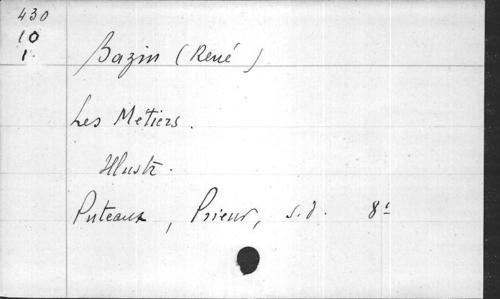 430
10
1.
Bazin (René)
Les Métiers.
Illustr.
Puteaux, Prieur, s.d. 8°